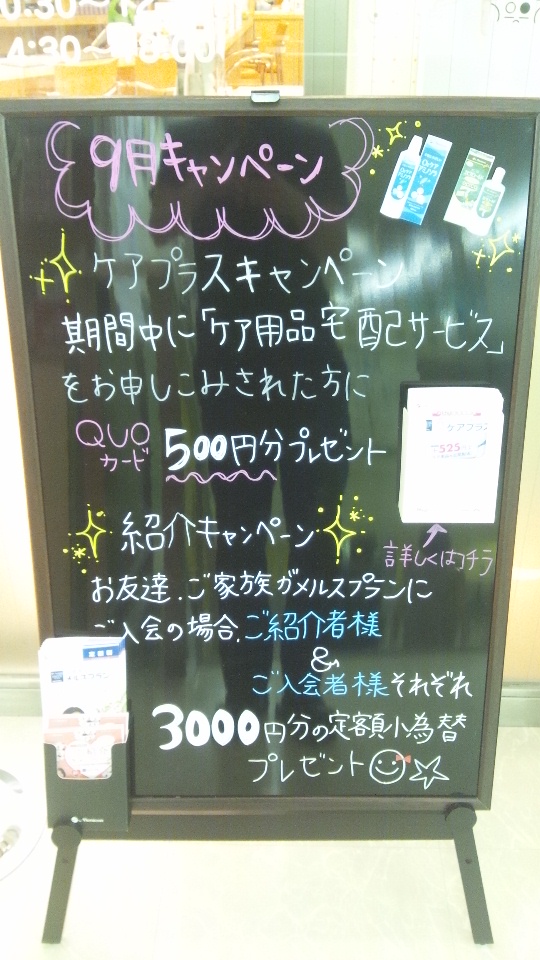 9月キャンペーン
ケアプラスキャンペーン
期間中に「ケア用品宅配サービス」
をお申しこみされた方に
QUO
カード
500円分プレゼント
ケアプラス
525
詳しくはコチラ
紹介キャンペーン
お友達.ご家族がメルスプランに
ご入会の場合.ご紹介者様
&
ご入会者様それぞれ
3000円分の定額小為替
プレゼント
メルスプラン